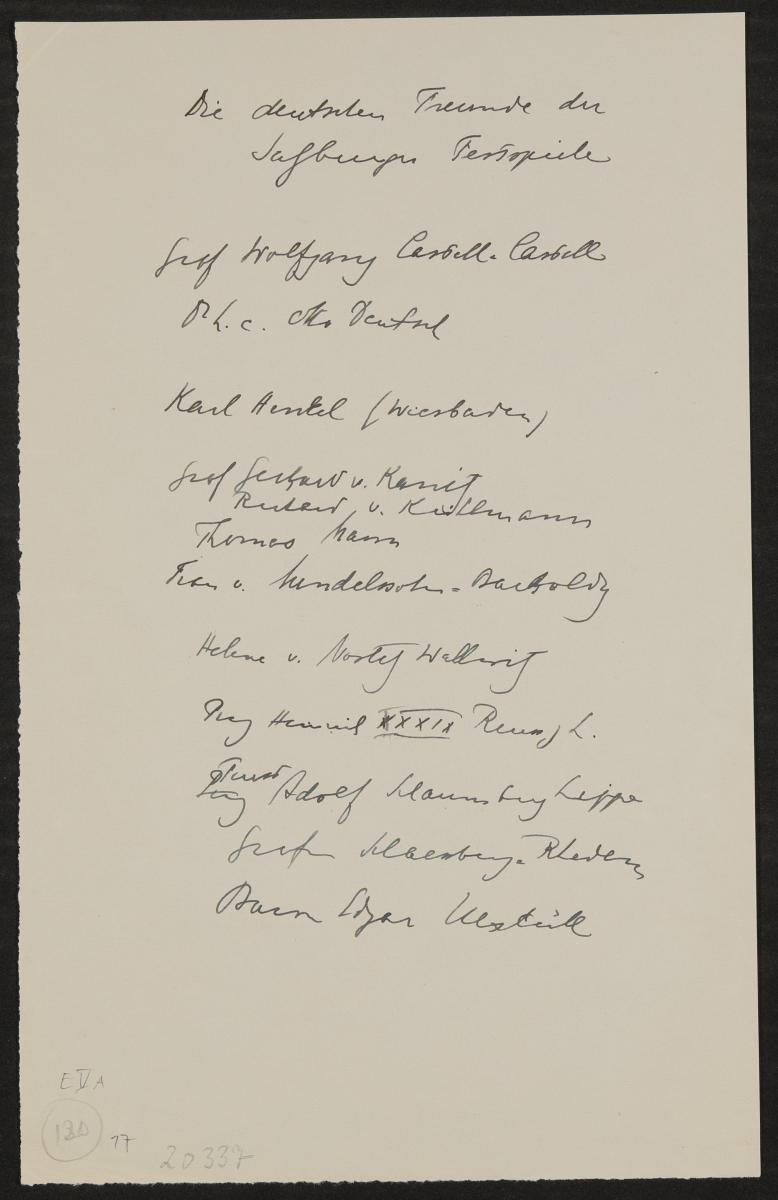 Die deutschen Freunde der
Salzburger Festspiele
Graf Wolfgang Castell-Castell
Dr h. c. Otto Deutsch
Karl Henkel (Wiesbaden)
Graf Gerhard v. Kanitz
Richard v. Kühlmann
Thomas Mann
Frau v. Mendelssohn-Bartholdy
Helene v. Nostitz Wallwitz
Prinz Heinrich XXXIX Reuss j. L.
Fürst
Prinz Adolf Schaumburg Lippe
Gräfin Schlenburg-Rhedern
Baron Edgar Uexküll
E V A
120
17
20337